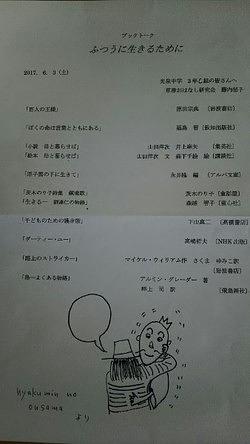 ブックトーク
ふつうに生きるために
2017. 6. 3 (土)
光泉中学 3年乙組の皆さんへ
草津おはなし研究会
「百人の王様」 原田宗典 [岩波書店]
「ぼくの命は言葉とともにある」 福島 智 [致知出版社]
「小説 母と暮らせば」 山田洋次 井上麻矢 [集英社]
「絵本 母と暮らせば」 山田洋次 文 森下千絵 絵 [講談社]
の下に生きて」 永井隆 編 [アルバ文庫]
「茨木のり子詩集 」 茨木のり子 [童話屋]
「生きる― 」 森越 智子 [童心社]
「子どものための 」 下山真二 [高橋書店]
「ダーティー・ユー」 高嶋哲夫 [NHK出版]
「路上のストライカー」 マイケル・ウィリアム作 さくま ゆみこ訳
[岩波書店]
「島―よくある物語」 アルミン・グレーダー 著
訳 [飛鳥新社]
hyakunin no
ousama
より